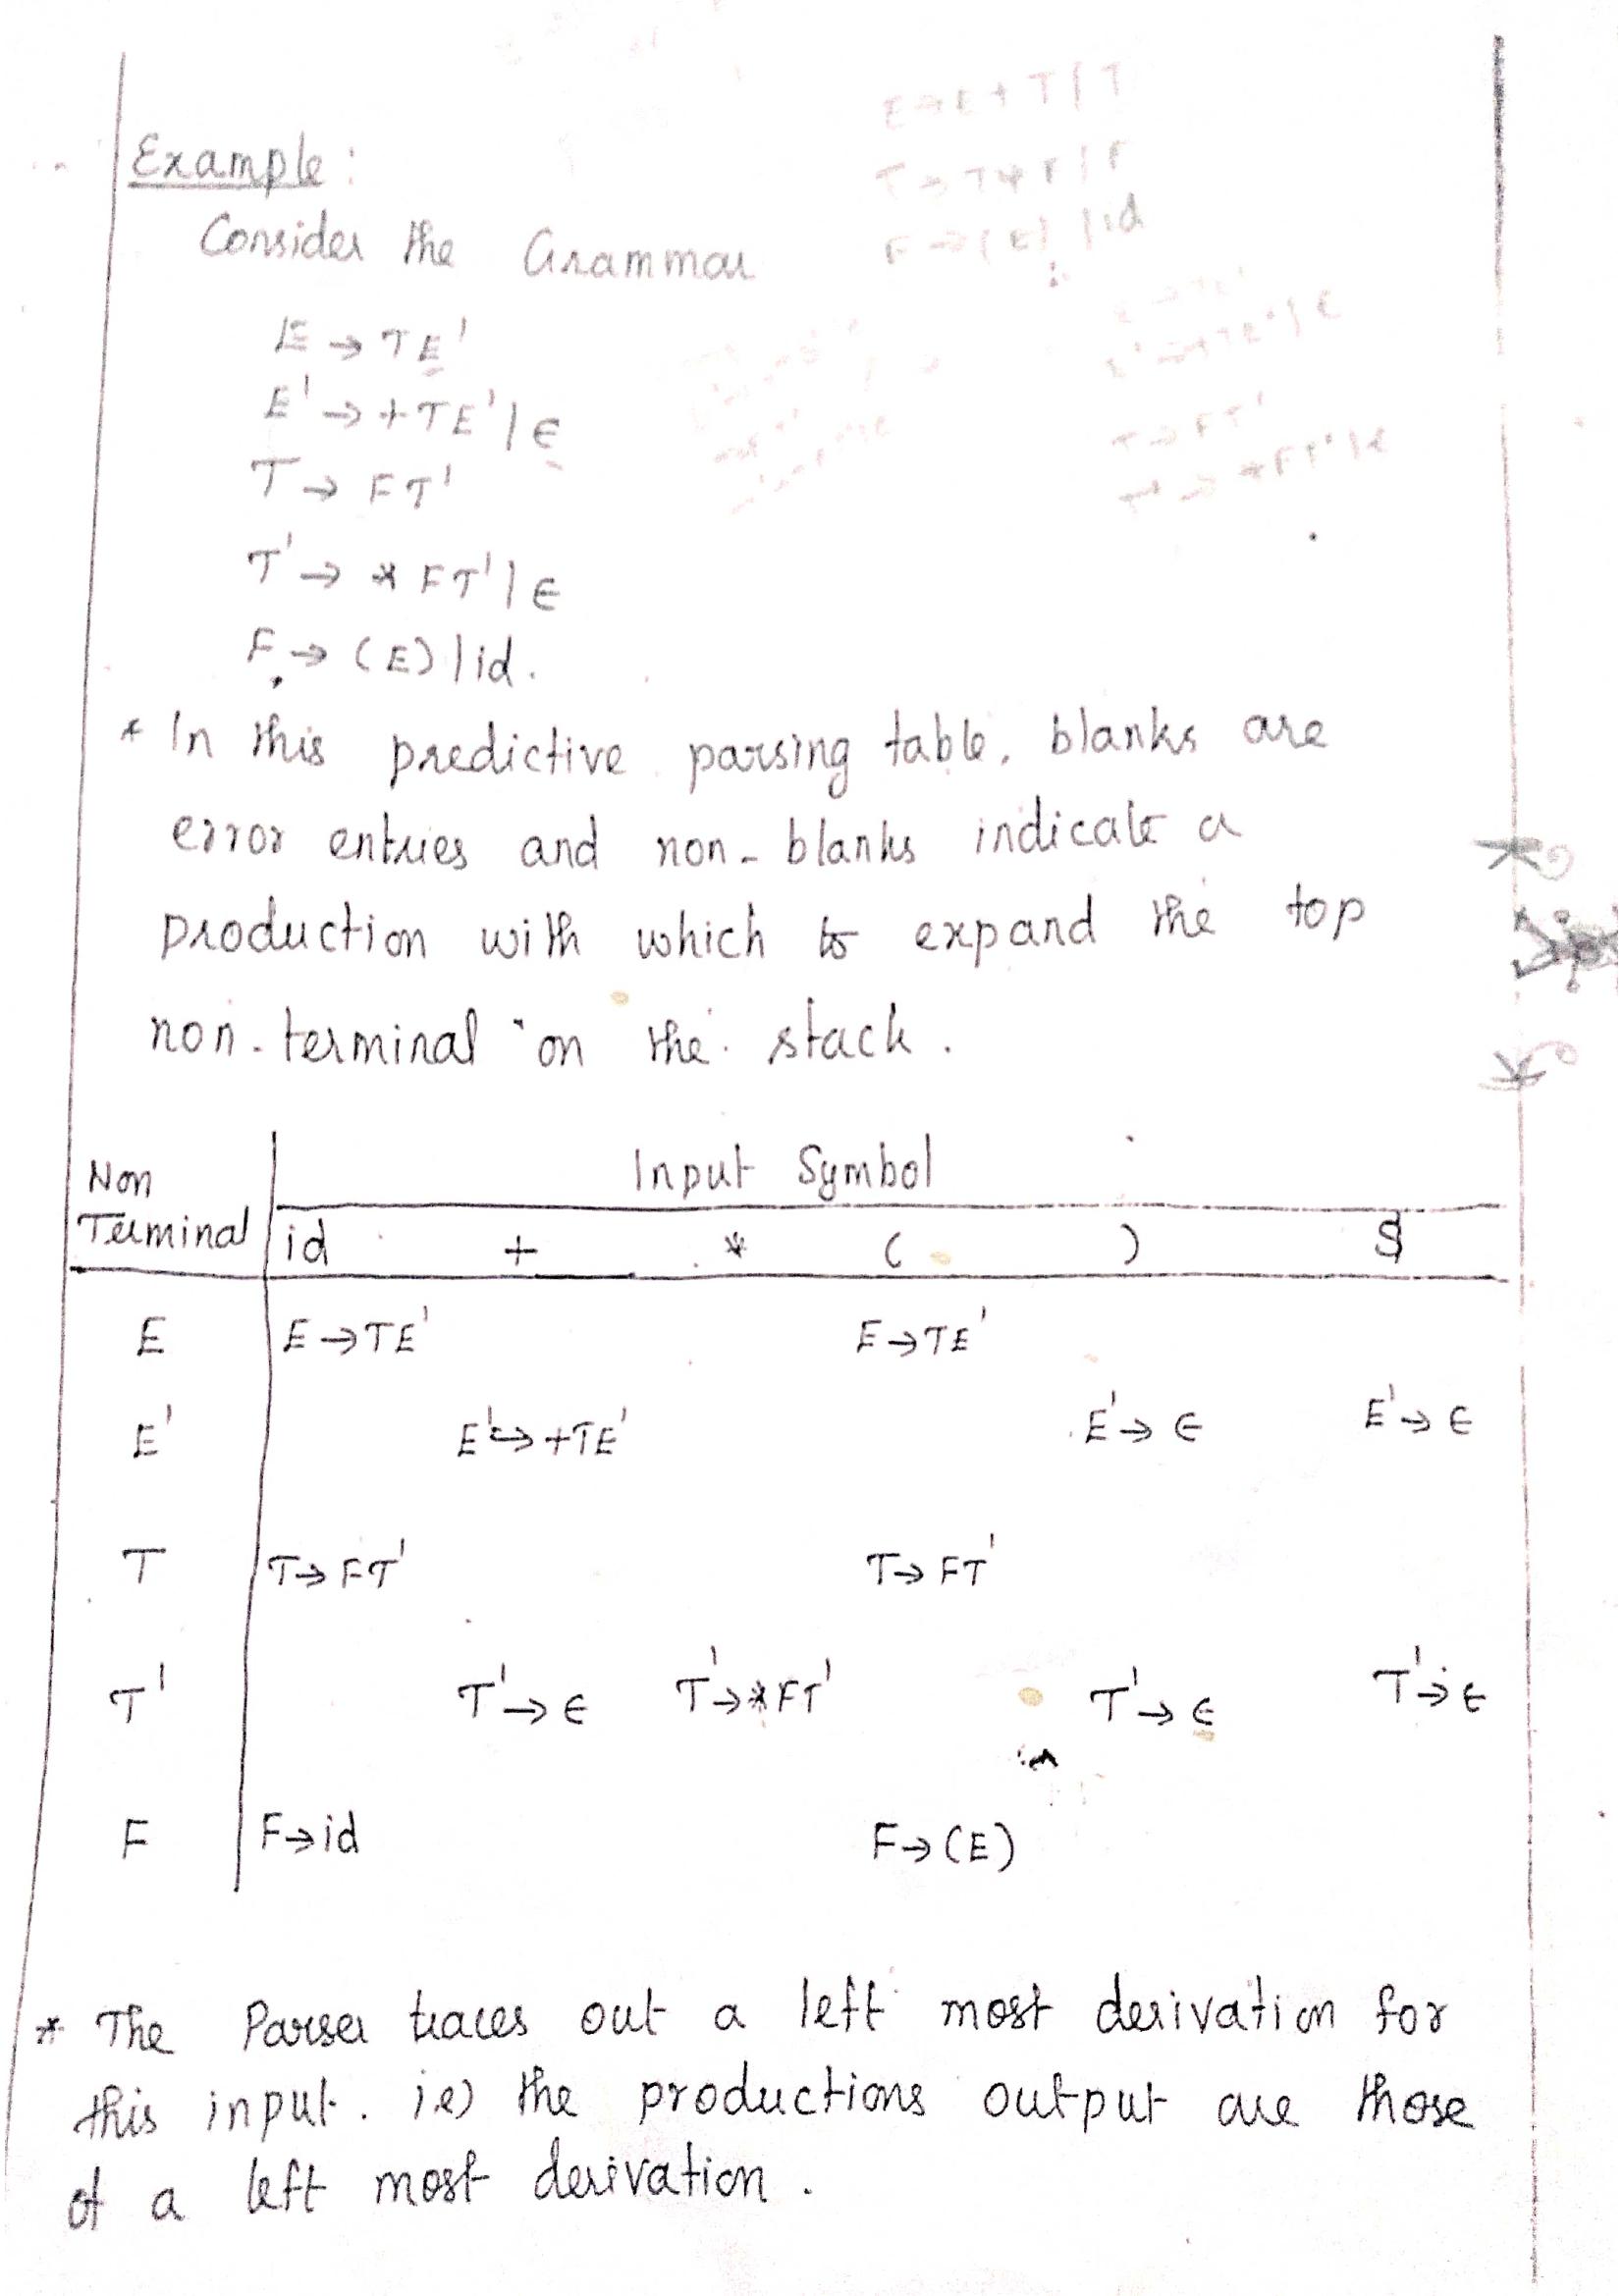 E → E + T | T
T → T * F | F
F → (E) | id
Example:
Consider the Grammar
E → TE'
E' → +TE' | ϵ
T → FT'
T' → * FT' | ϵ
F → (E) | id.
T → FT'
* In this predictive parsing table, blanks are
error entries and non-blanks indicate a
production with which to expand the top
non-terminal on the stack.
Non Terminal Input Symbol
id + * ( ) $
E E → TE' E → TE'
E' E' → +TE' E' → ϵ E' → ϵ
T T → FT' T → FT'
T' T' → ϵ T' → *FT' T' → ϵ T' → ϵ
F F → id F → (E)
* The Parser traces out a left most derivation for
this input. i.e) the productions output are those
of a left most derivation.